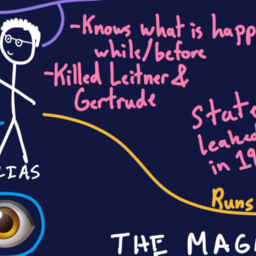 -Knows what is happ
while/before
-Killed Leitner &
Gertrude
State
leaked
in 19
LIAS
Runs
THE MAG